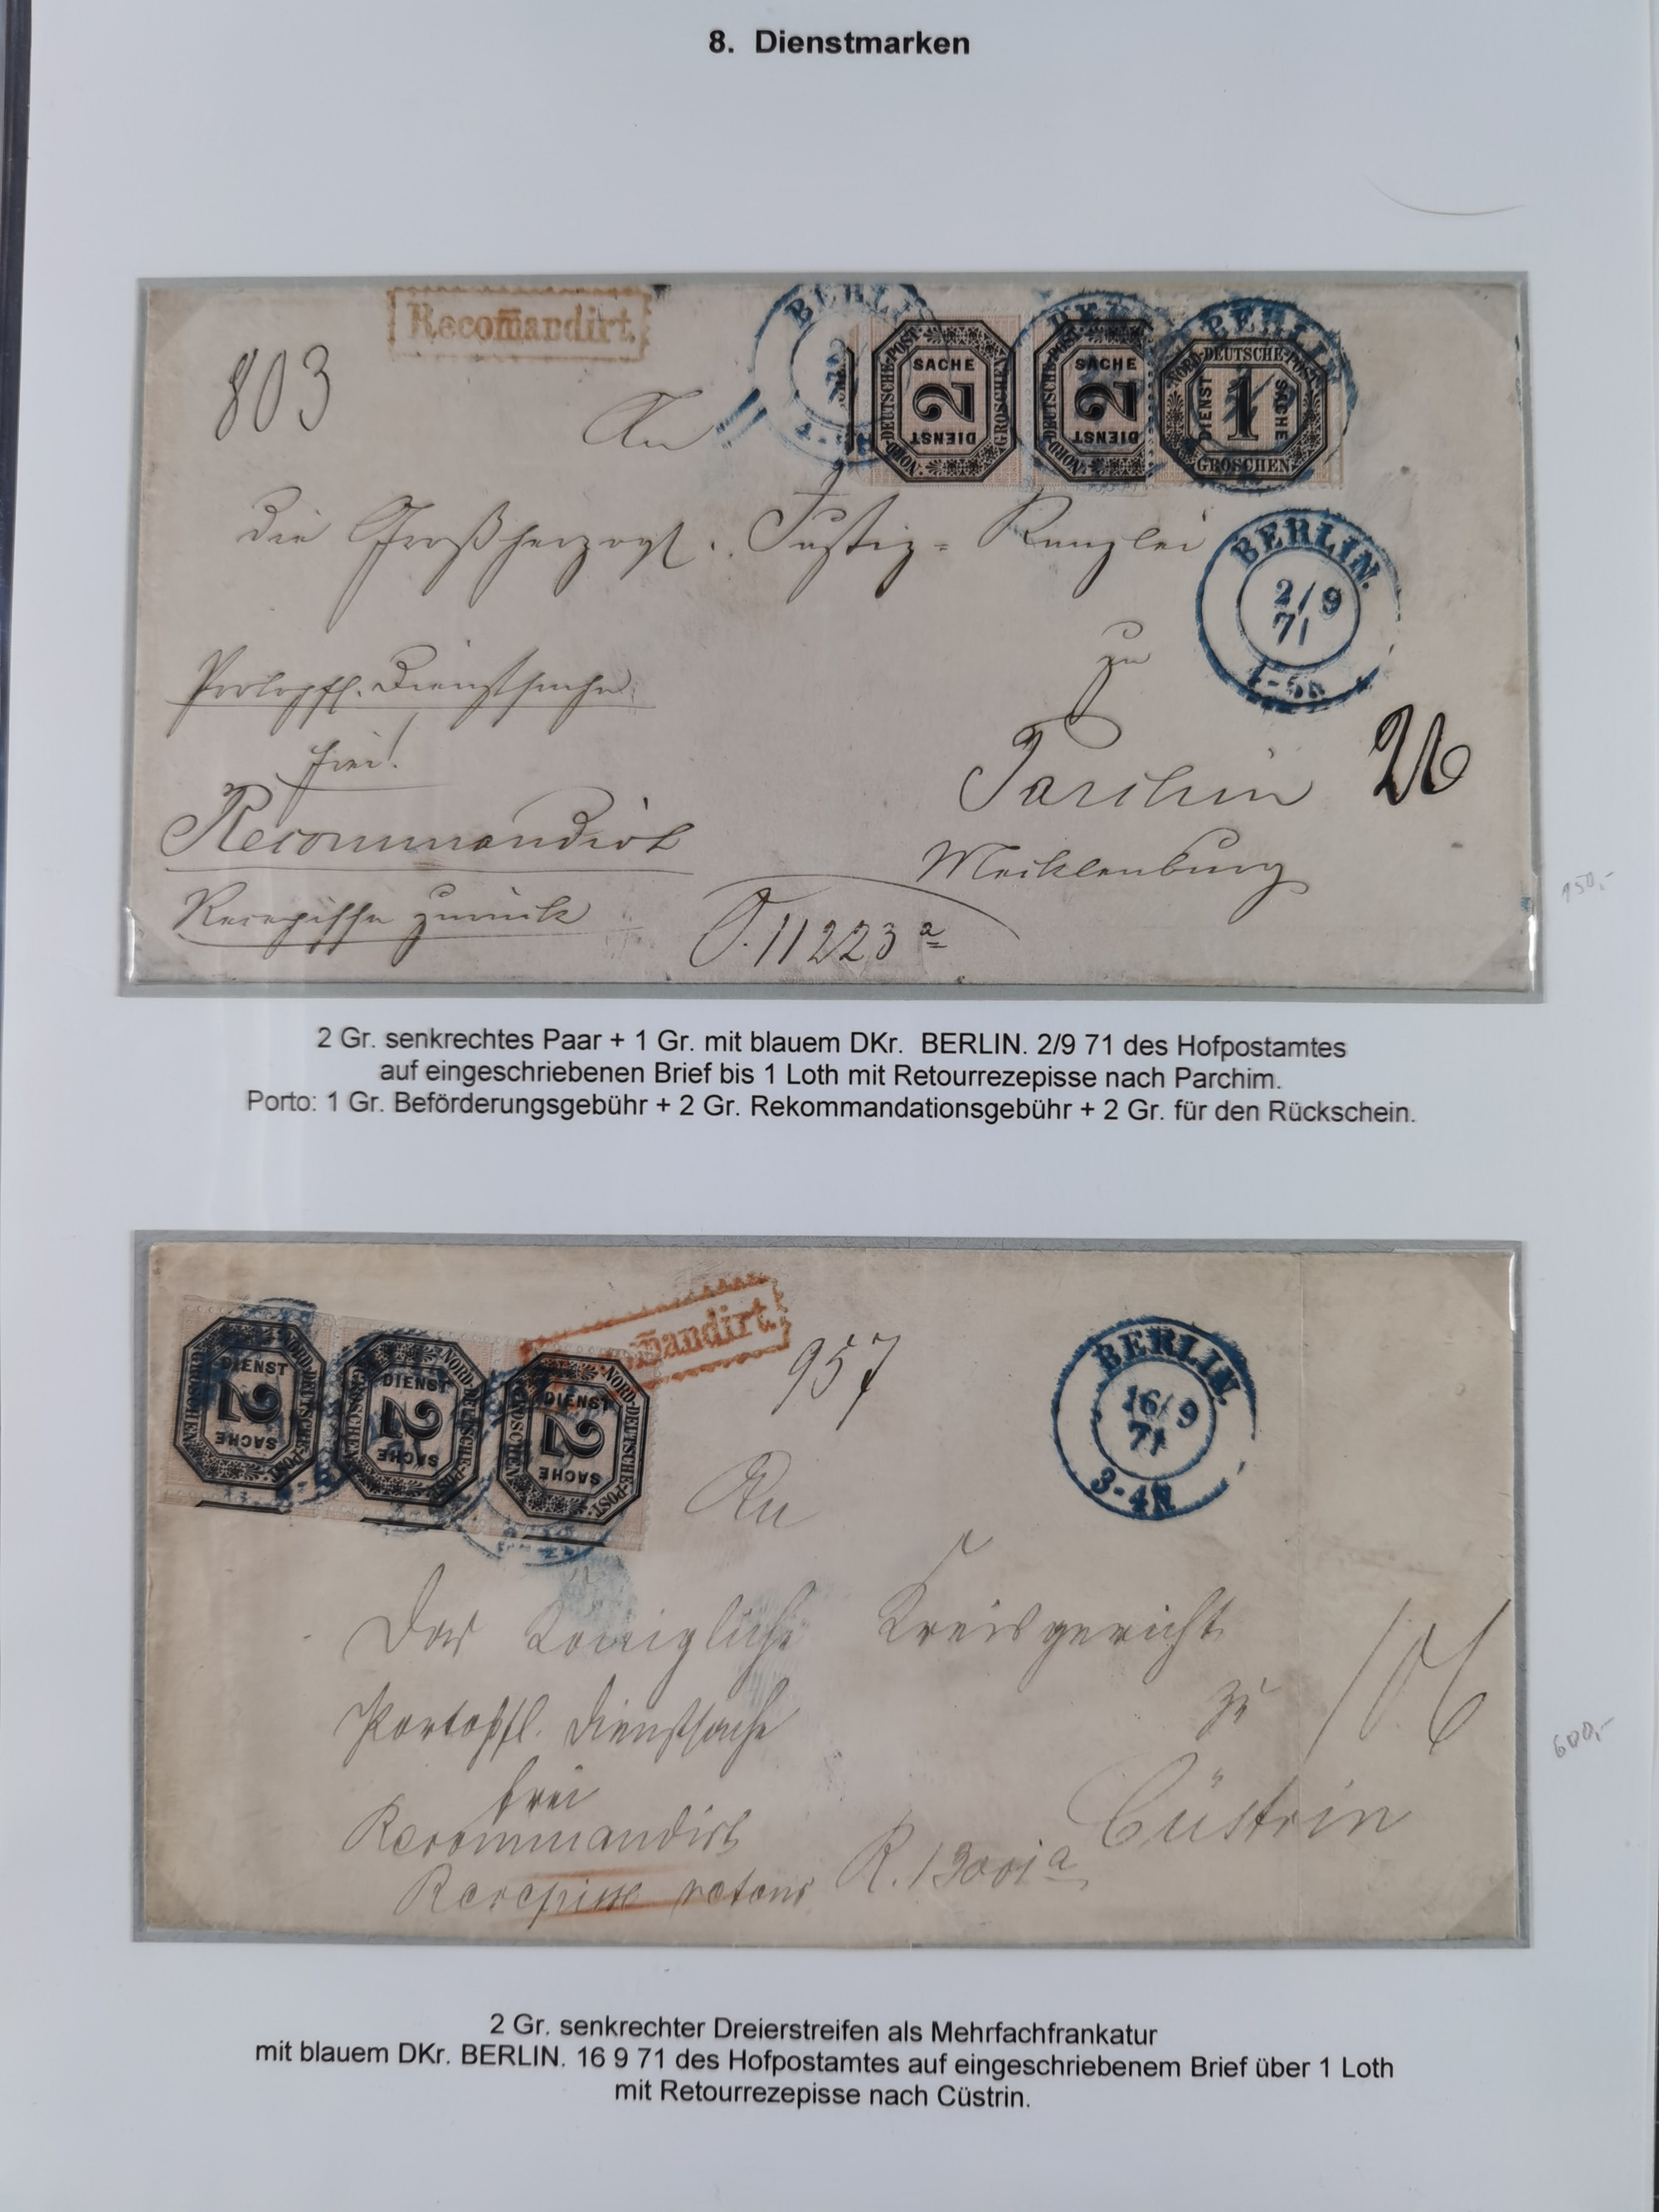 8. Dienstmarken
Recom̄andirt.
803
An
BERLIN
NORD-DEUTSCHE-POST
SACHE
2
DIENST
GROSCHEN
NORD-DEUTSCHE-POST
SACHE
2
DIENST
NORD-DEUTSCHE-POST
DIENST
1
SACHE
GROSCHEN
BERLIN
die Großherzogl. Justiz-Kanzlei
BERLIN.
2/9
71
zu
Portopfl. Dienstsache
frei!
Parchim
26
Recommandirt
Mecklenburg
Recepisse zurück
J. 11223 a
950,-
2 Gr. senkrechtes Paar + 1 Gr. mit blauem DKr. BERLIN. 2/9 71 des Hofpostamtes
auf eingeschriebenen Brief bis 1 Loth mit Retourrezepisse nach Parchim.
Porto: 1 Gr. Beförderungsgebühr + 2 Gr. Rekommandationsgebühr + 2 Gr. für den Rückschein.
NORD-DEUTSCHE-POST
DIENST
2
SACHE
GROSCHEN
NORD-DEUTSCHE-POST
DIENST
2
SACHE
GROSCHEN
NORD-DEUTSCHE-POST
DIENST
2
SACHE
GROSCHEN
mandirt.
957
BERLIN.
16/9
71
3-4N
An
Das Königliche Kreisgericht
zu
Portopfl. Dienstsache
frei
Recommandirt
Cüstrin
Recepisse retour
R. 13001 a
600,-
2 Gr. senkrechter Dreierstreifen als Mehrfachfrankatur
mit blauem DKr. BERLIN. 16 9 71 des Hofpostamtes auf eingeschriebenem Brief über 1 Loth
mit Retourrezepisse nach Cüstrin.